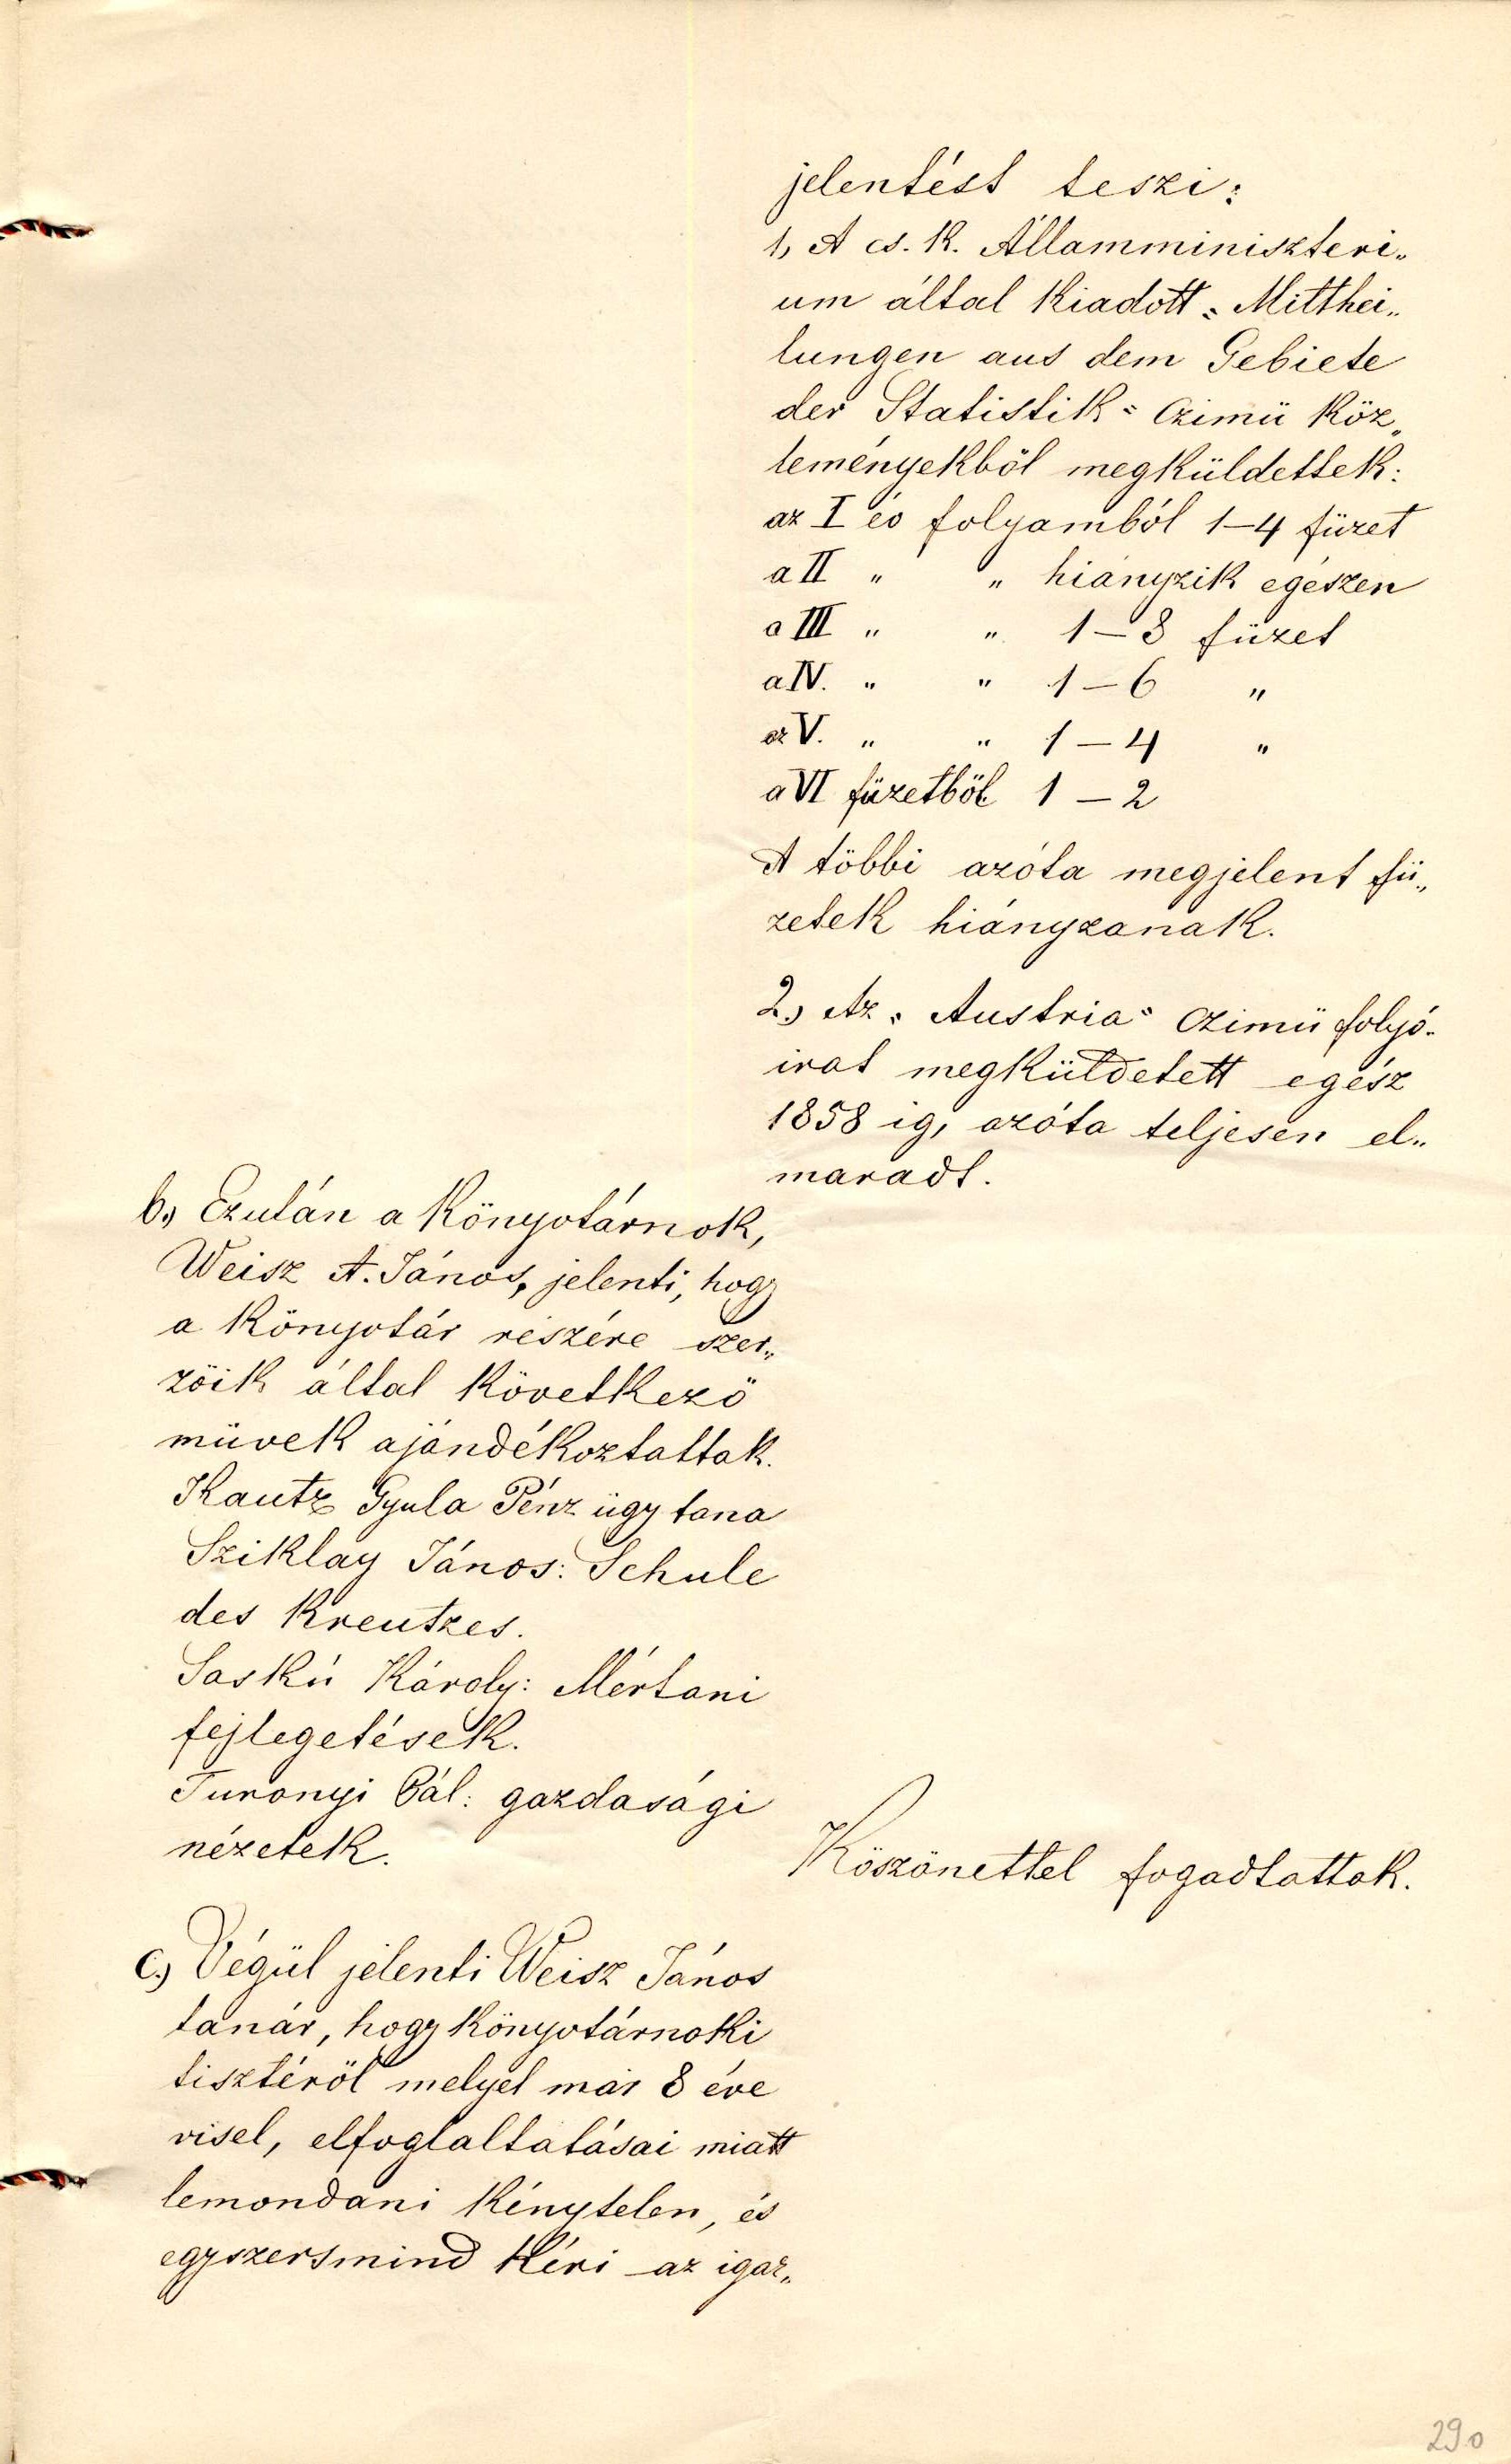 jelentést teszi:
1, A cs. k. Államminiszteri„
um által kiadott „Mitthei„
lungen aus dem Gebiete
der Statistik“ czimü köz„
leményekböl megküldettek:
az I év folyamból 1–4 füzet
a II „ „ hiányzik egészen
a III „ „ 1–8 füzet
a IV. „ „ 1–6 „
az V. „ „ 1–4 „
a VI füzetböl 1–2
A többi azóta megjelent fü„
zetek hiányzanak.
2, Az „Austria“ czimü folyó-
irat megküldetett egész
1858 ig, azóta teljesen el„
maradt.
b, Ezután a könyvtárnok,
Weisz A. János, jelenti, hogy
a könyvtár részére szer„
zöik által következö
müvek ajándékoztattak.
Kautz Gyula Pénz ügy tana
Sziklay János: Schule
des Kreutzes.
Saskú Károly: Mértani
fejlegetések.
Turányi Pál: gazdasági
nézetek.
Köszönettel fogadtattak.
c, Végül jelenti Weisz János
tanár, hogy könyvtárnoki
tisztéröl melyet már 8 éve
visel, elfoglaltatásai miatt
lemondani kénytelen, és
egyszersmind kéri az igaz„
290